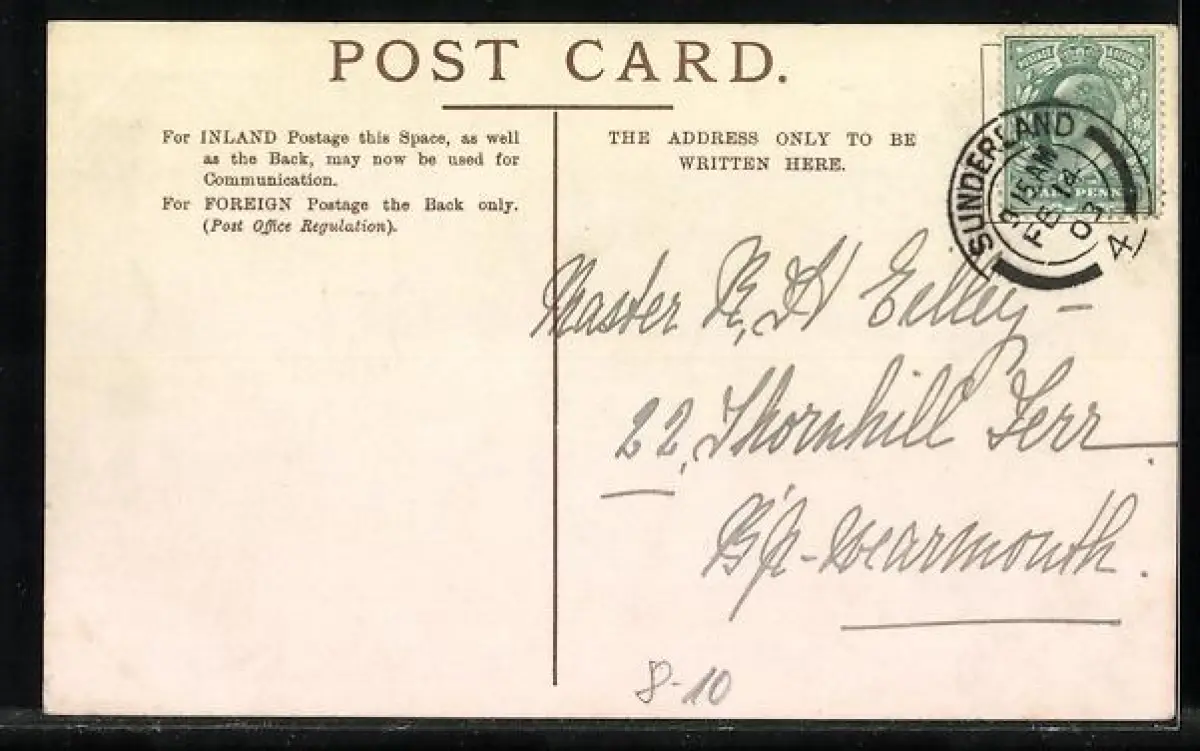 POST CARD.
For INLAND Postage this Space, as well
as the Back, may now be used for
Communication.
For FOREIGN Postage the Back only.
(Post Office Regulation).
THE ADDRESS ONLY TO BE
WRITTEN HERE.
SUNDERLAND
15 AM
FE 14
03
4
Master
22, Thornhill Terr.
B'p-wearmouth.
8-10